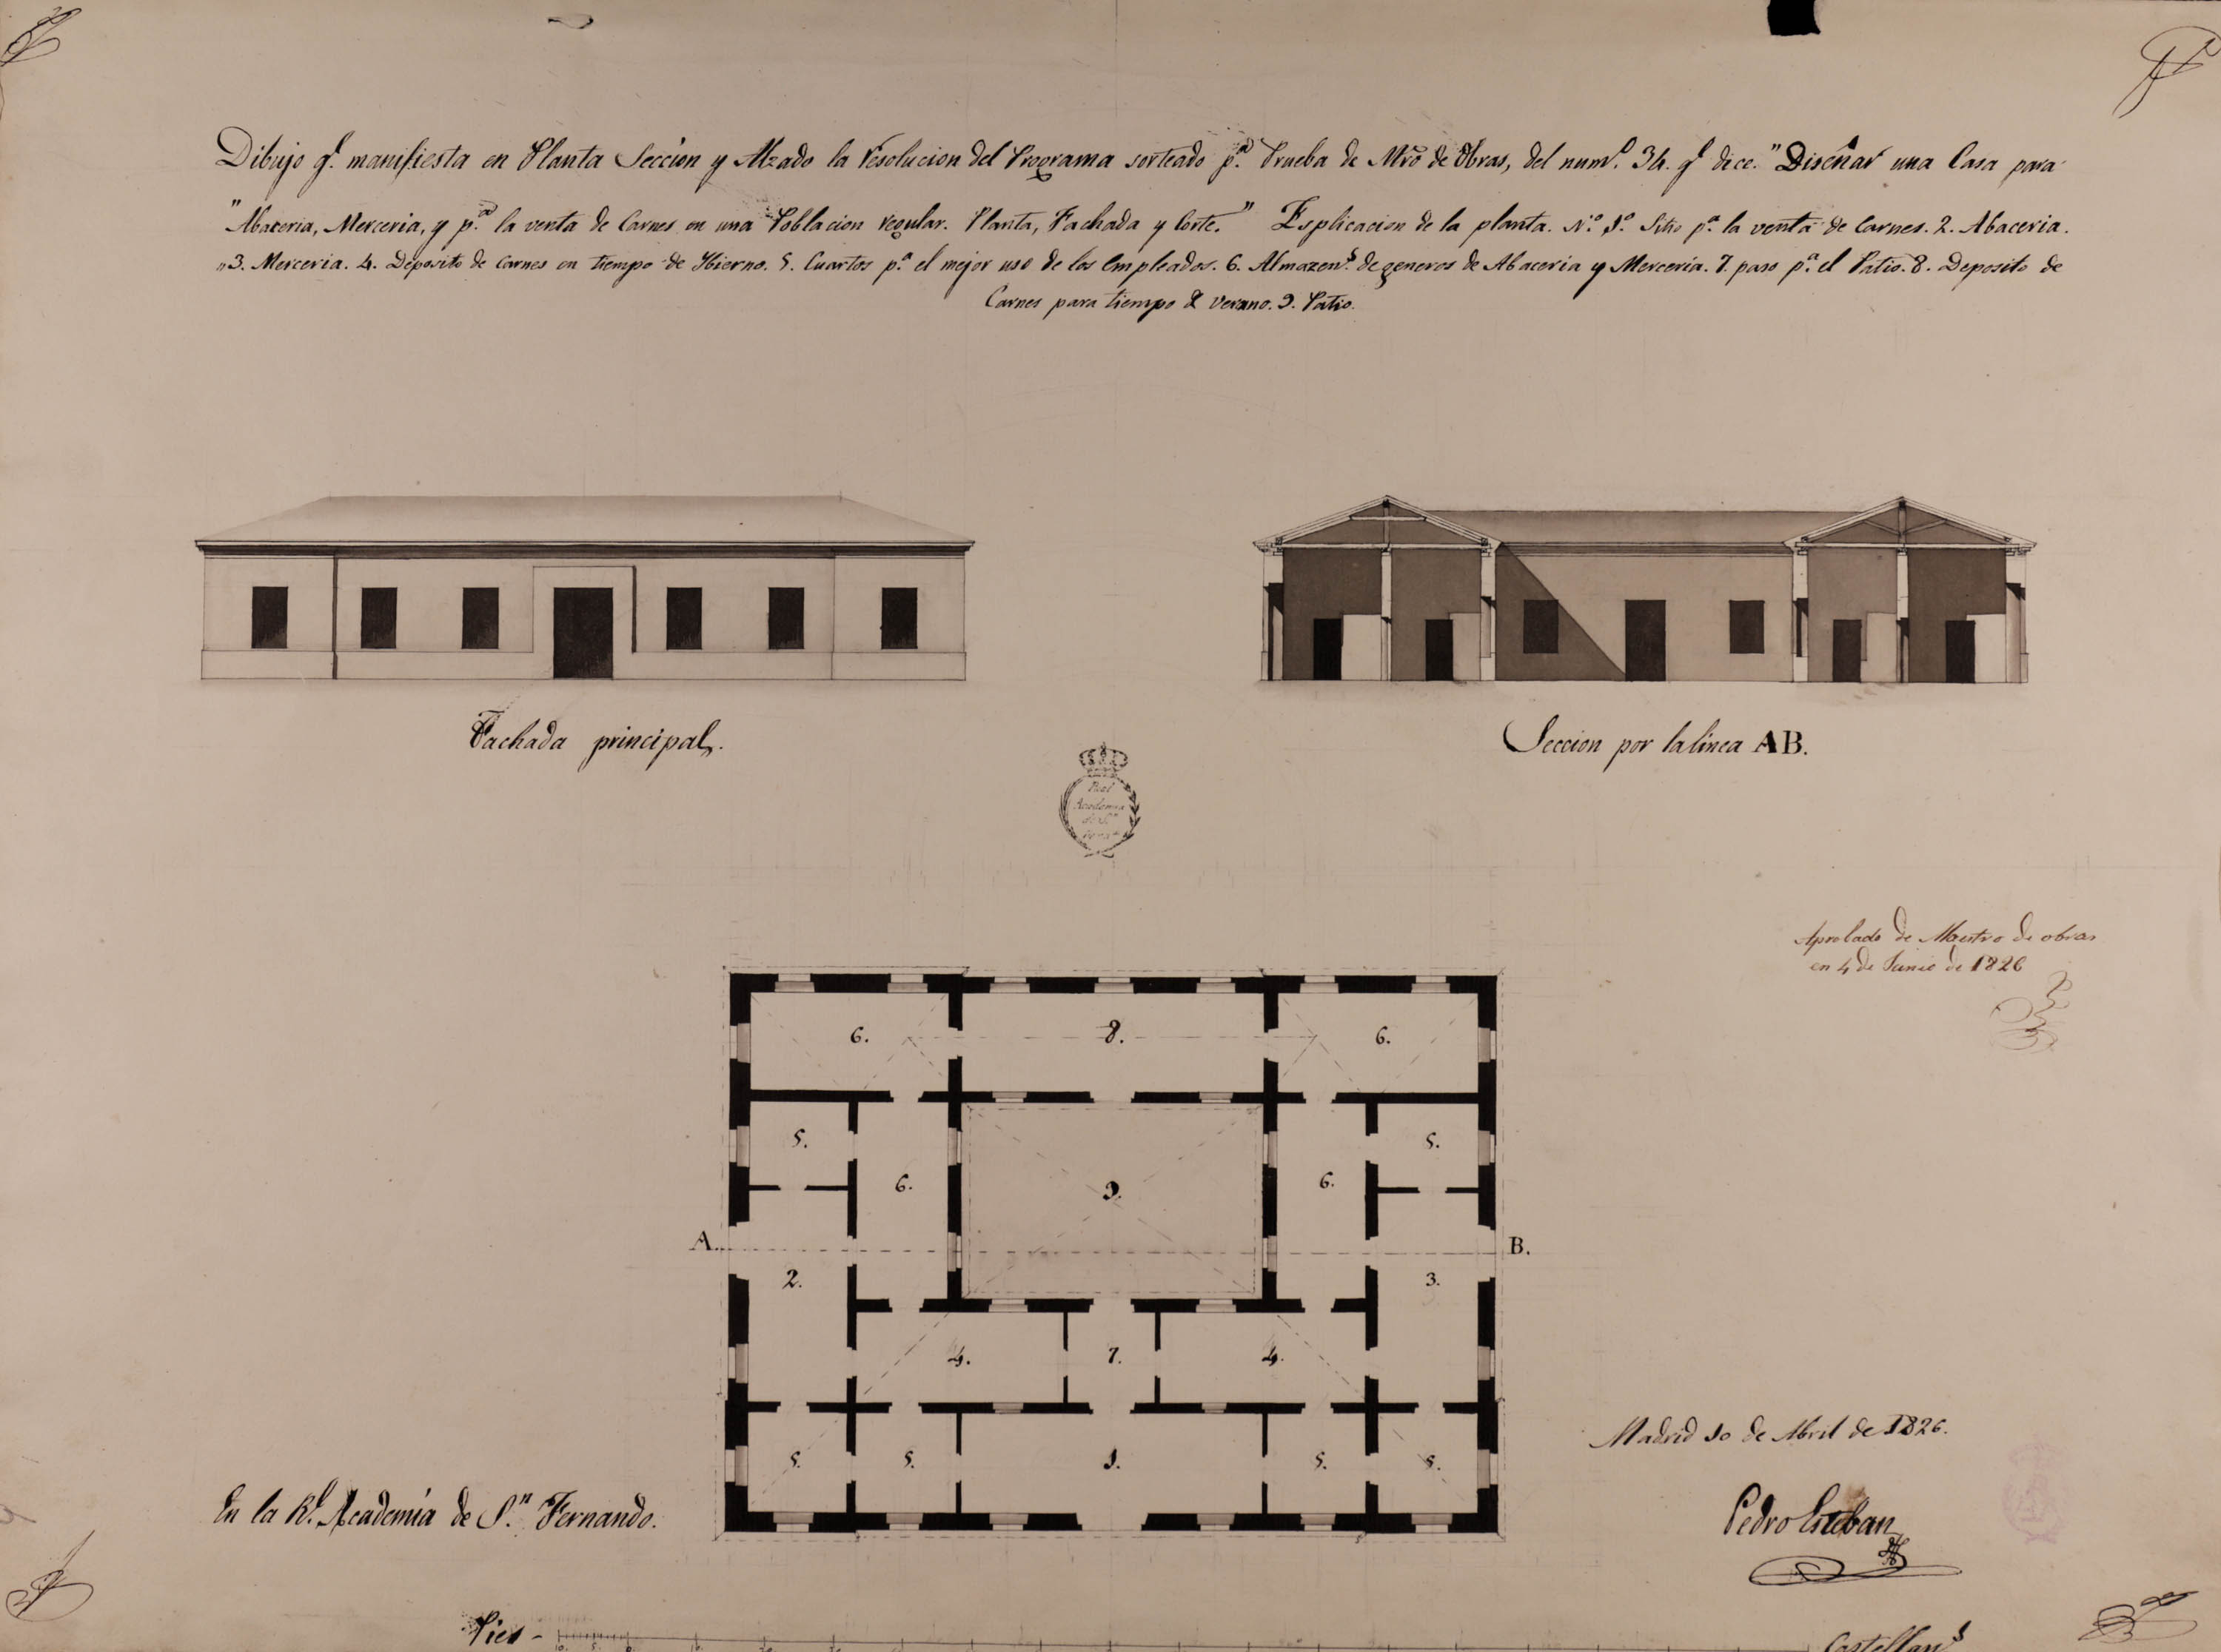 Dibujo q.e manifiesta en Planta Sección y Alzado la resolucion del Programa sorteado p.a Prueba de Mtro de Obras, del num.o 34. q.e dice. "Diseñar una Casa para
"Abaceria, Merceria, y p.a la venta de Carnes en una Poblacion regular. Planta, Fachada y Corte." Esplicacion de la planta. N.o 1.o Sitio p.a la venta de Carnes. 2. Abaceria.
"3. Merceria. 4. Deposito de Carnes en tiempo de Ybierno. 5. Cuartos p.a el mejor uso de los Empleados. 6. Almazen.s de generos de Abaceria y Merceria. 7. paso p.a el Patio. 8. Deposito de
Carnes para tiempo d verano. 9. Patio.
Fachada principal.
Seccion por la linea AB.
Real
Academia
de S.n
Aprobado de Maestro de obras
en 4 de Junio de 1826
6. 8. 6.
5. 5.
6. 9. 6.
A. B.
2. 3.
4. 7. 4.
5. 5. 1. 5. 5.
Madrid 10 de Abril de 1826.
En la R.l Academia de S.n Fernando.
Pedro Esteban
Pies
10. 5. 0. 10. 20. 30.
Castellan.s